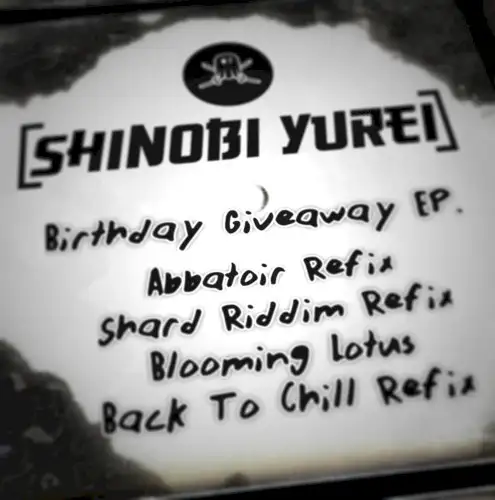 [SHINOBI YUREI]
Birthday Giveaway EP.
Abbatoir Refix
Shard Riddim Refix
Blooming Lotus
Back To Chill Refix